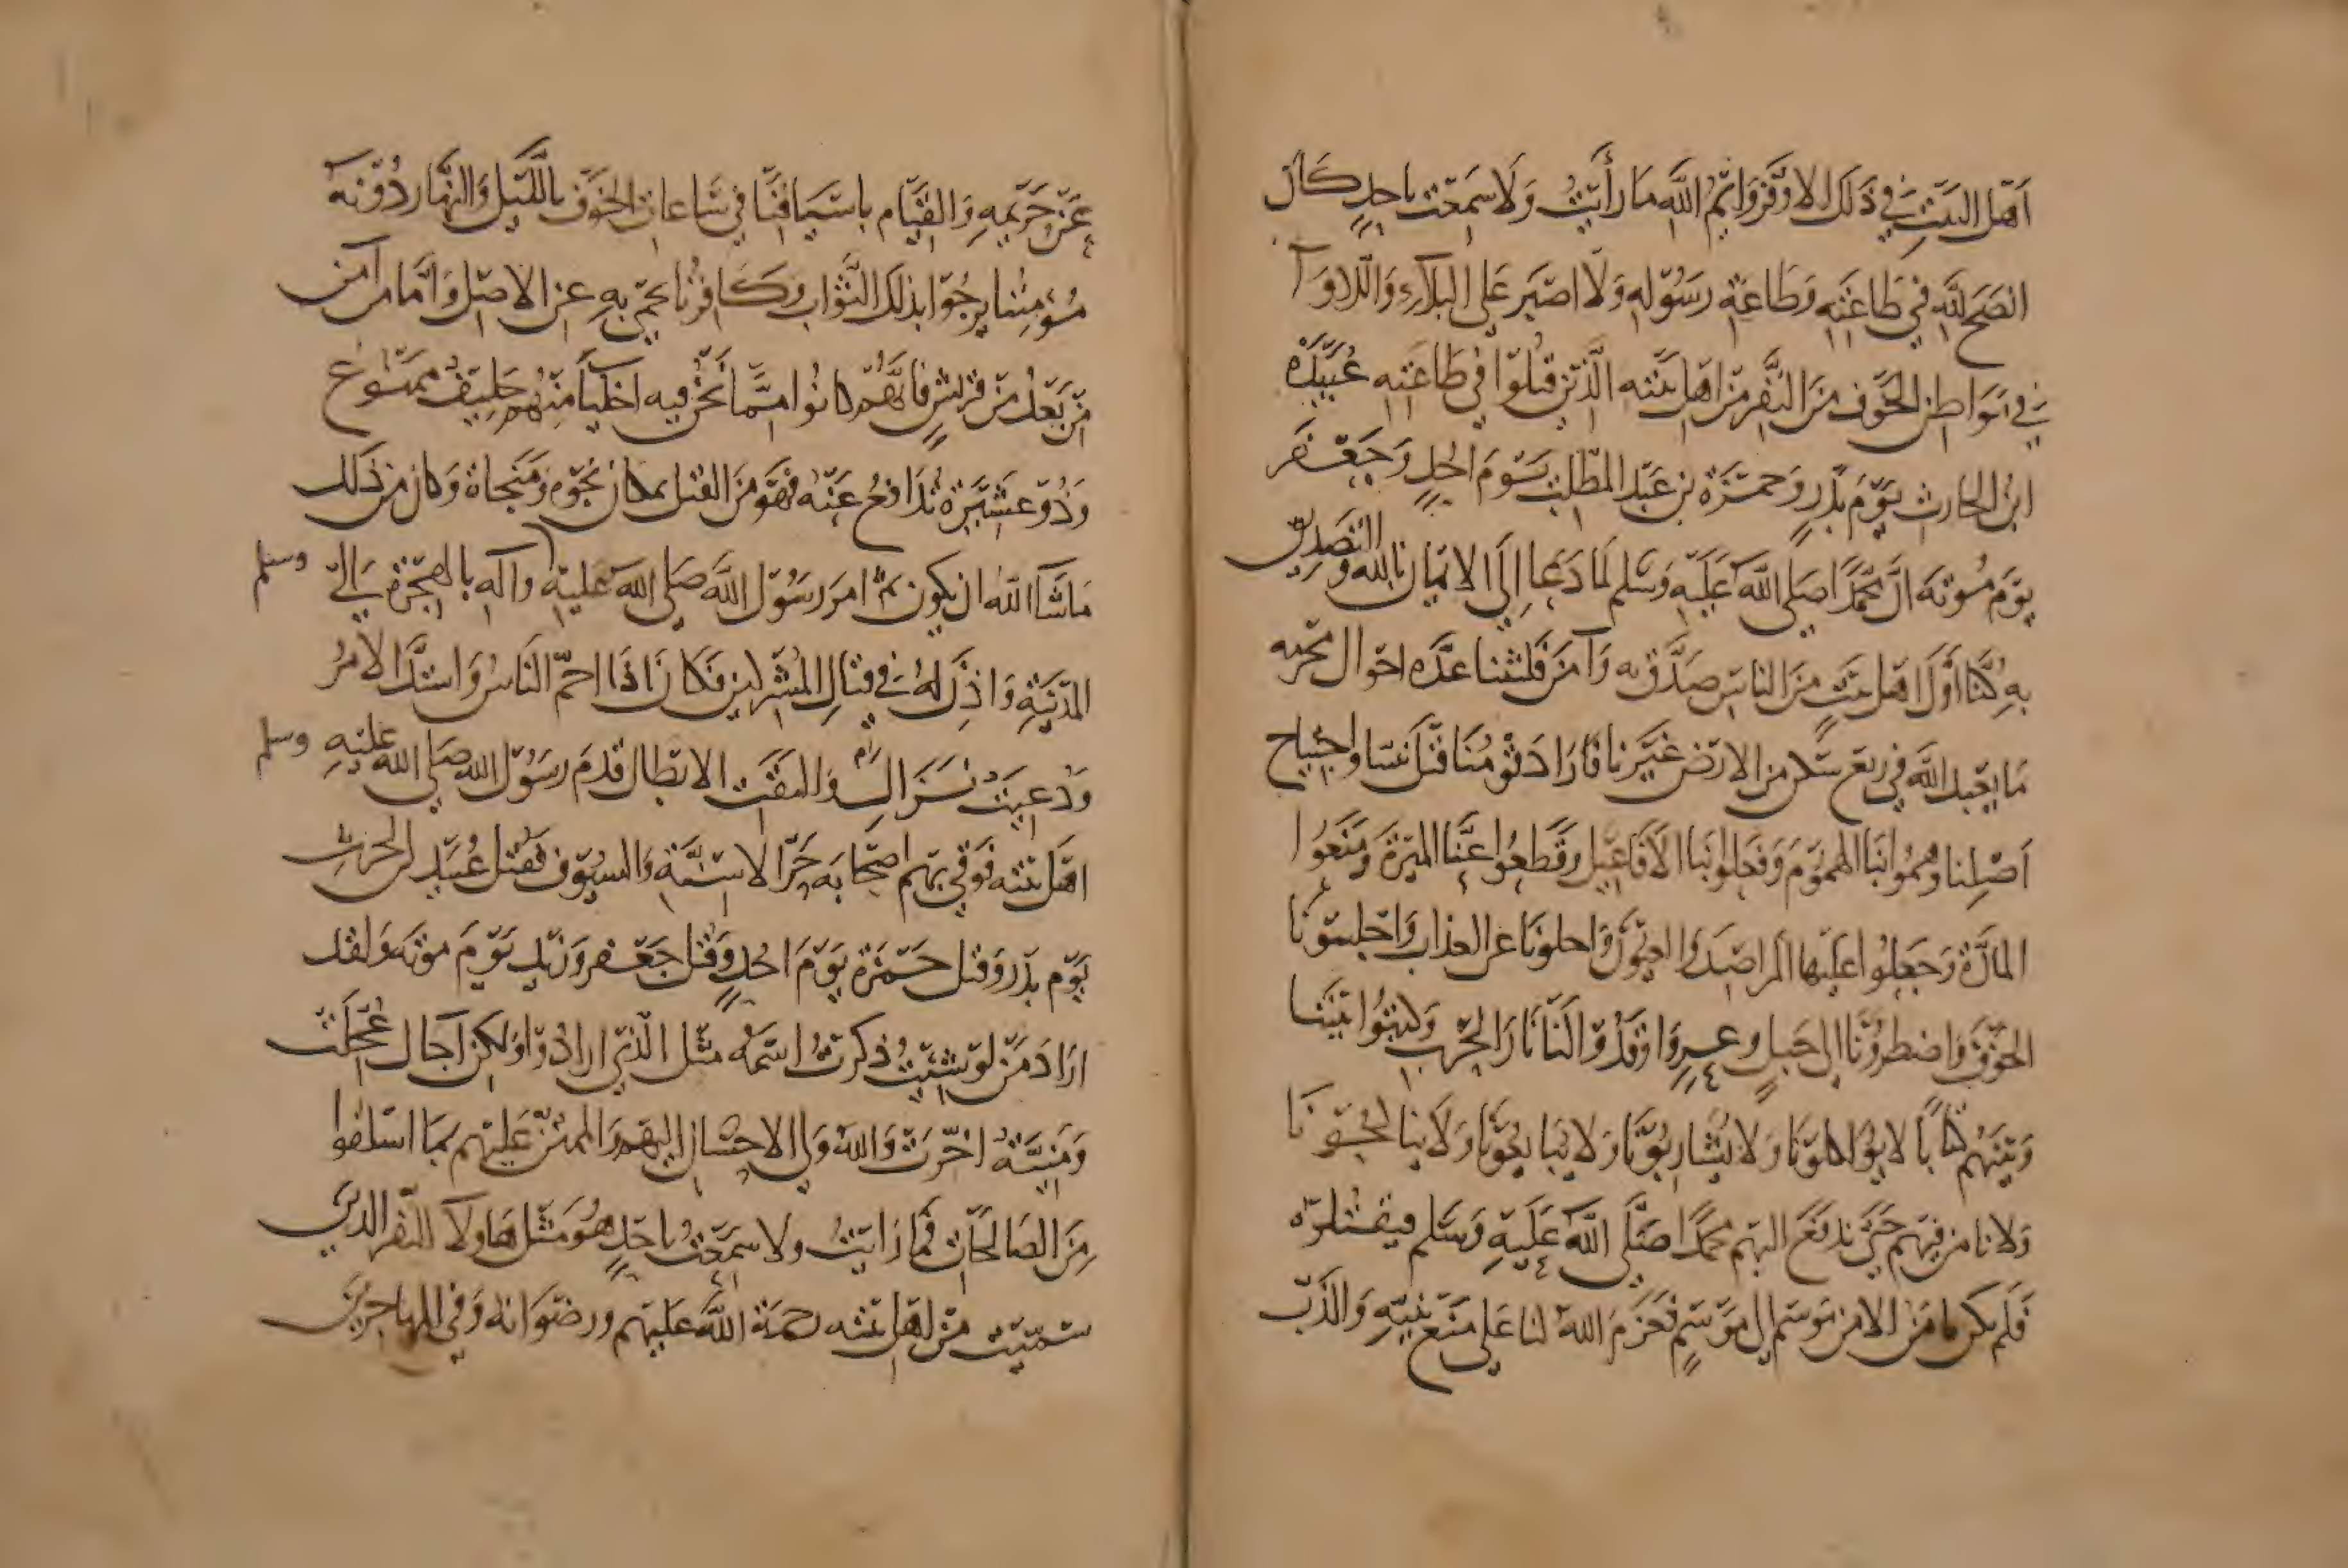 اَهْل البَيْتِ فِي ذَلكَ الاوْفَرُ وَايْمُ اللَّهِ مَا رأَيْتُ وَلَا سَمِعْت باحدٍ كَانَ
انصَح للَّهِ في طَاعَتِهِ وَطَاعَةِ رَسُوْلِهِ وَلَا اصْبَر عَلى البَلآءِ وَاللاوَآ
فِي مَوَاطِن الخَوْف مِنَ النَّفَرِ مِنْ اهْل بَيْتِه الَّذيْنَ قُتِلُوْا في طَاعَتِهِ عُبَيْدَةُ
ابنُ الحَارث يَوْمَ بَدْرٍ وَحَمْزَة بن عَبْد المطّلِب يَوْمَ احُدٍ وَجَعْفَر
يَوْمَ مُوتَهَ انَّ مُحَمَّدًا صَلَى اللَّه عَلَيْهِ وَسَلم لمَا دَعَا إِلَى الايْمَان بالله وَالتَصدِيْق
بِهِ كُنَّا أَوَّلَ اهْل بَيْتٍ مِنَ النَاسِ صَدَّق بِه وَآمَنَ فَلبثْنا عدَّه احْوال مجَرّمه
مَا يعْبد اللَّه في رَبْع سَكن من الارْض غَيْرنا فَارَادَ قوْمُنَا قَتْلَ نبينا واجْتِيَاح
اَصْلِنا وهَمُّوا بنَا الهُمُوْمَ وَفَعَلُوا بنَا الاَفَاعِيْل وَقَطعُوا عَنَّا الميْرَةَ وَمَنَعُوا
المَادَّة وَجَعَلُوا عَليْها المَرَاصِدَ والعيُوْنَ وَاحلونَا غير العذاب وَاحْلسُوْنَا
الخَوْفَ وَاضطرُوْنَا الى جَبلٍ وعرٍ وَاوْقَدُوْا لَنَا نَارَ الحَرْب وَكتبُوا بَيْنَنَا
وَبَيْنَهُم كتَاباً لا يؤاكلوْنَا وَلا يشَاربُوْنَا وَلا يبَايعُوْنَا وَلَا يناكحُونَا
وَلا نامَن فيْهم حَتى نَدفَعَ اليْهم مُحَمَّدًا صَلَّى اللَّه عَلَيْهِ وَسَلم فيَقْتلوْه
فَلَمْ نكن نامَن الا من مَوسم الى مَوْسمٍ فَعَزَمَ الله لنا عَلى مَنْع نبيّهِ وَالذَبّ
عَنْ حَرِيْمِهِ وَالقيَام باسْيَافِنَا فِي سَاعَاتِ الخَوْف بالليْل وَالنهَار دُوْنَهُ
مُؤْمِنُنا يرجُوْا بذلكَ الثَّوَاب وَكَافِرُنَا يحَمْي بِهِ عن الاصْل وَاَمَّا من آمَن
مِنْ بَعْدُ مِنْ قريْشٍ فَانَّهُمْ كانُوا ممَّا نَحْنُ فيه اخْلِيَآ مِنْهُم حَلِيْفٌ ممنُوعْ
وَذُوْ عَشِيْرَة تُدَافعُ عَنْه فهَوَ مِنَ القَتْل بمكان نجوةٍ وَمَنجَاة وَكان من ذَلك
مَا شَآ الله ان يكون ثمّ امَرَ رَسُوْل اللَّه صَلى الله عَليْهِ وآلِه وسلم بالهجْرَة الىَ
المَدْيْنَةِ وَاذِنَ لهُ فِي قتالِ المُشْركين فَكَانَ اذَا احْمَرّ النَاسُ وَاشتدَّ الامْرُ
وَدُعِيَتْ نَزَال وَرَام وَالتقَت الابْطال قَدمَ رسَوْل الله صَلى الله عَليْهِ وسلم
اهْلَ بَيْتِه فَوَقَي بهم اصْحَابَه حَرَّ الاسِنَّة وَالسيُوْف فقُتل عُبَيْدة بن الحرث
يَوْم بَدْر وَقُتل حَمْزَة يَوْمَ احُدٍ وَقُتل جَعْفر وزيْد يَوْمَ موْتَه وَلَقد
ارَادَ مَنْ لوْ شِئْتُ ذكرْتُ اسْمَهُ مثْل الّذيْ ارادُوْا وَلكن آجَال عُجِّلَتْ
وَمَنِيَّتهُ اخّرَت وَاللهُ وَلي الاحْسَان اليْهم وَالممْتنّ عَليْهم بمَا اسْلفوا
مِنَ الصَالحَات فمَا رَايْتُ ولا سَمِعْتُ باحَدٍ هُو مَثْل هَاولآ النفَر الذين
سَمّيْت مِنْ اهْل بَيْته رحمَة اللَّه عَليْهم ورضْوَانه وَفي المهَاجريْنَ